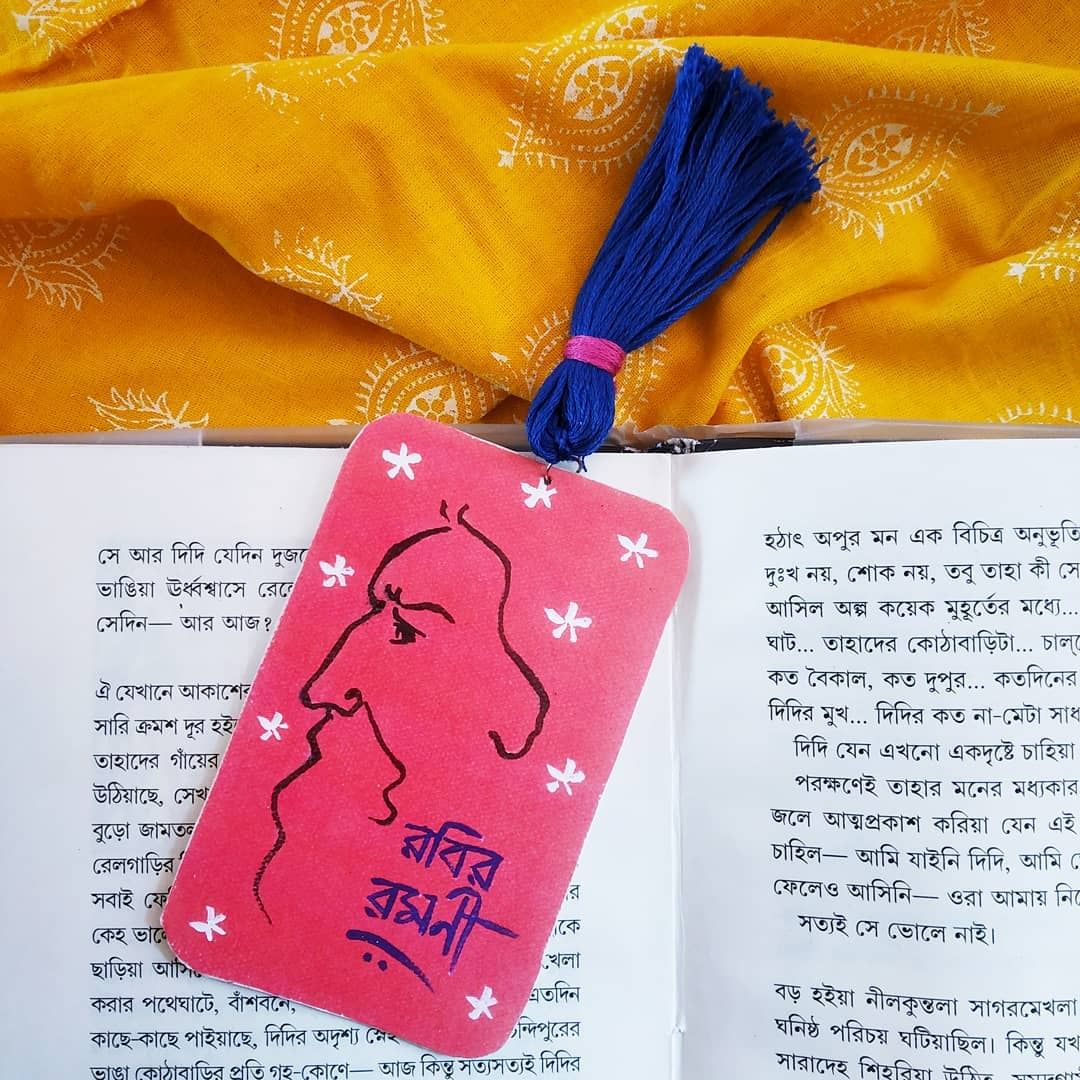 সে আর দিদি যেদিন
ভাঙিয়া ঊর্ধ্বশ্বাসে
সেদিন— আর আজ?
ঐ যেখানে আকাশের
সারি ক্রমশ দূর
তাহাদের গাঁয়ের
উঠিয়াছে,
বুড়ো
রেলগাড়ির
সবাই
কেহ
ছাড়িয়া
খেলা
করার পথেঘাটে, বাঁশবনে,
এতদিন
কাছে-কাছে পাইয়াছে, দিদির অদৃশ্য
ভাঙা কোঠাবাড়ির প্রতি গৃহ-কোণে— আজ কিন্তু সত্যসত্যই দিদির
রবির
রমনী
হঠাৎ অপুর মন এক বিচিত্র
দুঃখ নয়, শোক নয়, তবু তাহা কী
আসিল অল্প কয়েক মুহূর্তের মধ্যে...
ঘাট... তাহাদের কোঠাবাড়িটা...
কত বৈকাল, কত দুপুর... কতদিনের
দিদির মুখ... দিদির কত না-মেটা
দিদি যেন এখনো একদৃষ্টে চাহিয়া
পরক্ষণেই তাহার মনের মধ্যকার
জলে আত্মপ্রকাশ করিয়া যেন এই
চাহিল— আমি যাইনি দিদি, আমি
ফেলেও আসিনি— ওরা আমায়
সত্যই সে ভোলে নাই।
বড় হইয়া নীলকুন্তলা সাগরমেখলা
ঘনিষ্ঠ পরিচয় ঘটিয়াছিল। কিন্তু যখ
সারাদেহ শিহরিয়া